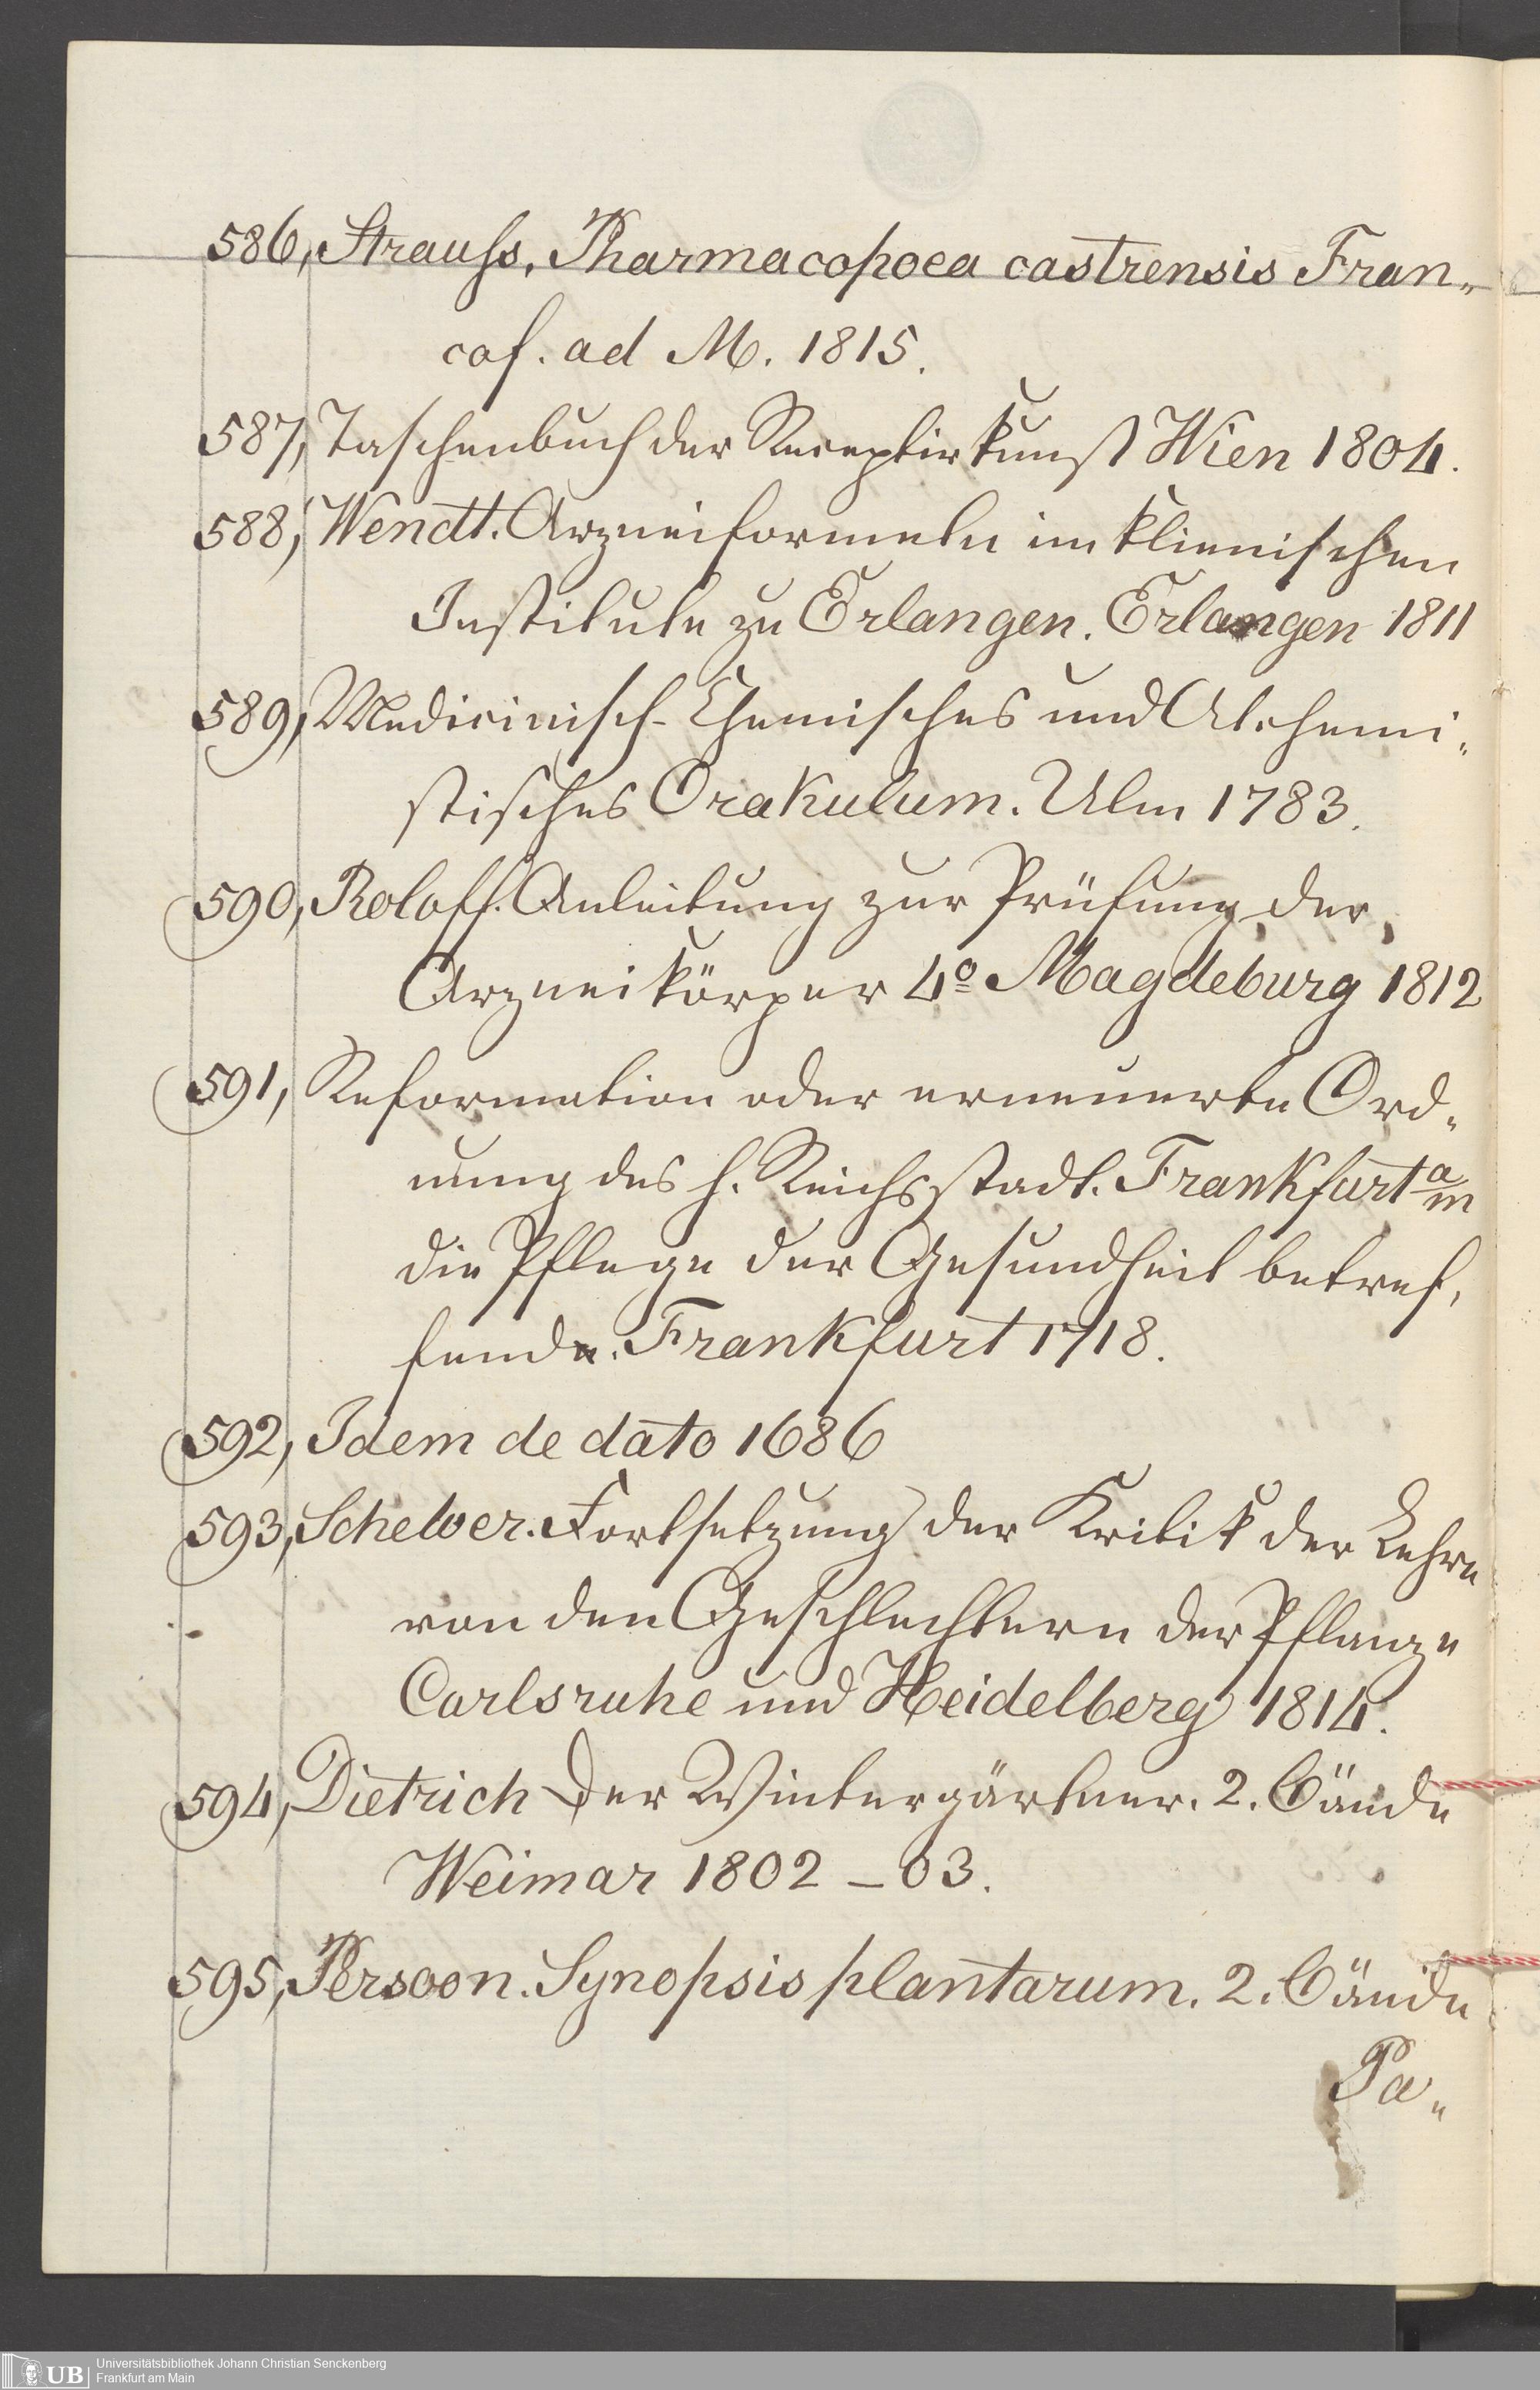 586, Strauss. Pharmacopoea castrensis Fran„
cof. ad M. 1815.
587, Taschenbuch der Receptirkunst Wien 1804.
588, Wendt. Arzneiformeln im klienischen
Institute zu Erlangen. Erlangen 1811
589, Medicinisch-Chemisches und Alchemi„
stisches Orakulum. Ulm 1783.
590, Roloff. Anleitung zur Prüfung der
Arzneikörper 4o Magdeburg 1812
591, Reformation oder erneuerte Ord„
nung des h. Reichsstadt. Frankfurt a/m
die Pflege der Gesundheit betref„
fende. Frankfurt 1718.
592, Idem de dato 1686
593, Schelver. Fortsetzung der Kritik der Lehre
von den Geschlechtern der Pflanze
Carlsruhe und Heidelberg 1814.
594, Dietrich Der Wintergärtner. 2. Bände
Weimar 1802 – 03.
595, Persoon. Synopsis plantarum. 2. Bände
Pa„
UB
Universitätsbibliothek Johann Christian Senckenberg
Frankfurt am Main